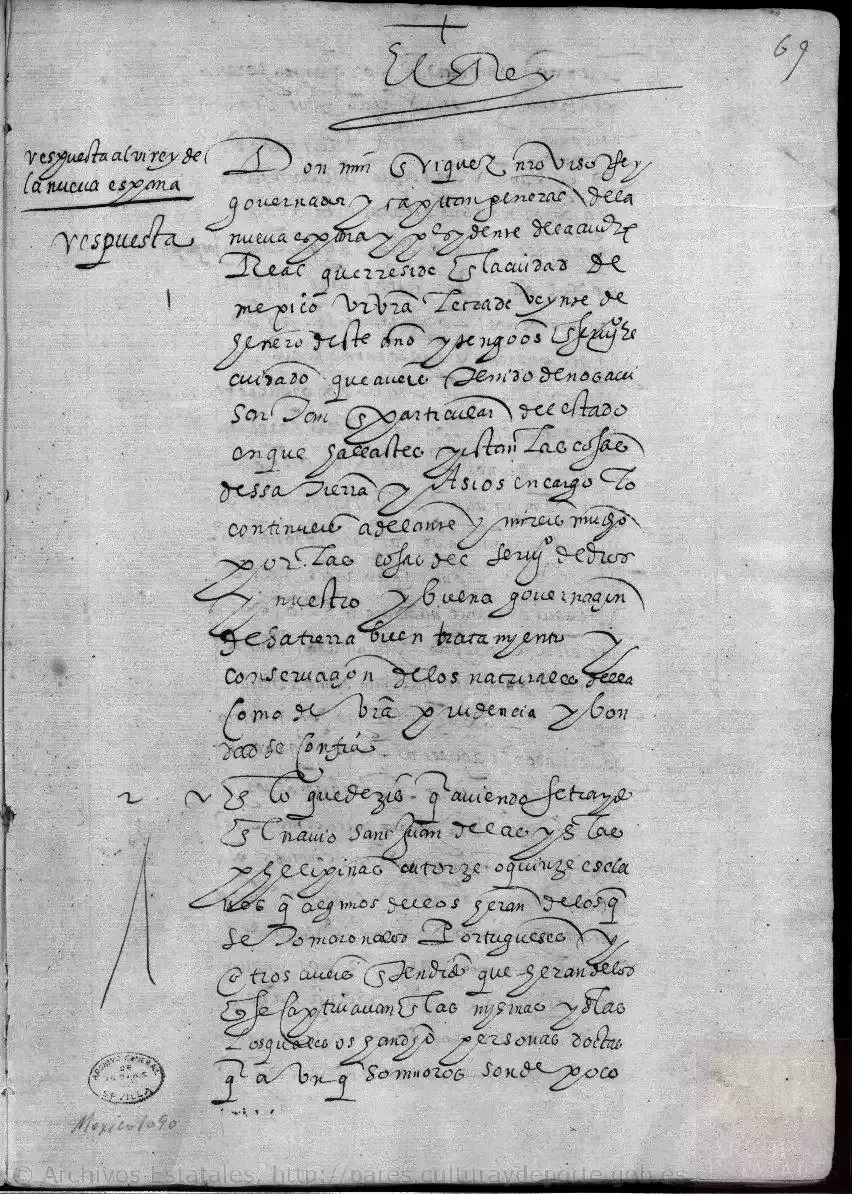 69
El Rey
respuesta al virey de
la nueva españa
respuesta
Don min Enrriquez nro Visorrey
governador y capitan general de la
nueva españa y presydente de la audiª
Real que rreside En la ciudad de
mexico vi vrã letra de veynte de
henero deste año y tengo os En serviº he
cuidado que aveis Tenido de nos avi
sar Tan En particular del estado
en que hallastes y estan Las cosas
dessa Tierra y Asi os encargo lo
continueis adelante y mireis mucho
por Las cosas del serviº de dios
y nuestro y buena governaçion
desa tierra buen tratamyento y
conservaçion de los naturales della
Como de vrã prudencia y bon
dad se Confia
2 y En lo que dezis q aviendo se traydo
En El navio Sant Juan de las yslas
phelipinas catorze o quinze escla
vos q algunos dellos heran de los q
se Tomaron a los Portugueses y
otros aveis Entendido que heran de los
que se Captivavan En las mysmas yslas
Los quales os han dicho personas doctas
q a un q son moros son de poco
ARCHIVO GENERAL
DE
INDIAS
SEVILLA
Mexico 1090
© Archivos Estatales, http://pares.culturaydeporte.gob.es